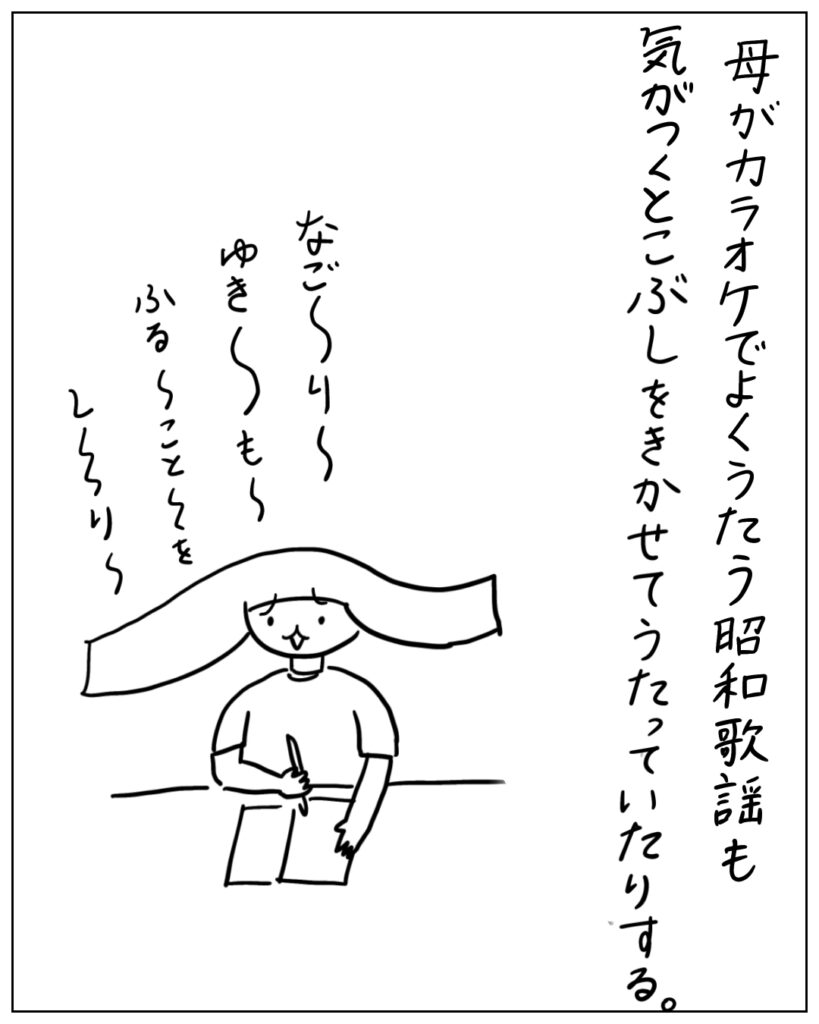 母がカラオケでよくうたう昭和歌謡も
気がつくとこぶしをきかせてうたっていたりする。
なご〜り〜
ゆき〜も〜
ふる〜こと〜を
し〜り〜